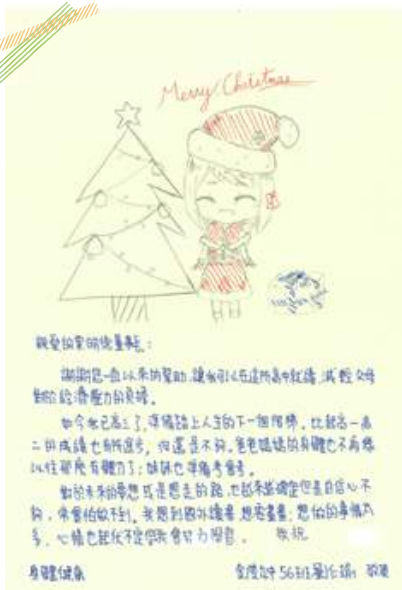 Merry Christmas
親愛的家扶總董事長：
謝謝您一直以來的幫助，讓我可以在這所高中就讀，減輕父母
對於經濟壓力的負擔。
如今我已高三了，準備踏上人生的下一個階梯，比起高一高
二的成績也有所進步，但還是不夠。爸爸媽媽的身體也不再像
以往那麼有體力了；妹妹也準備考會考。
對於未來的夢想或是想走的路，也越來越確定但是自信心不
夠，常害怕做不到。我想到國外讀書，想畫畫；害怕的事情太
多，心情也起伏不定但我會努力學習。 敬祝
身體健康 56班 敬上